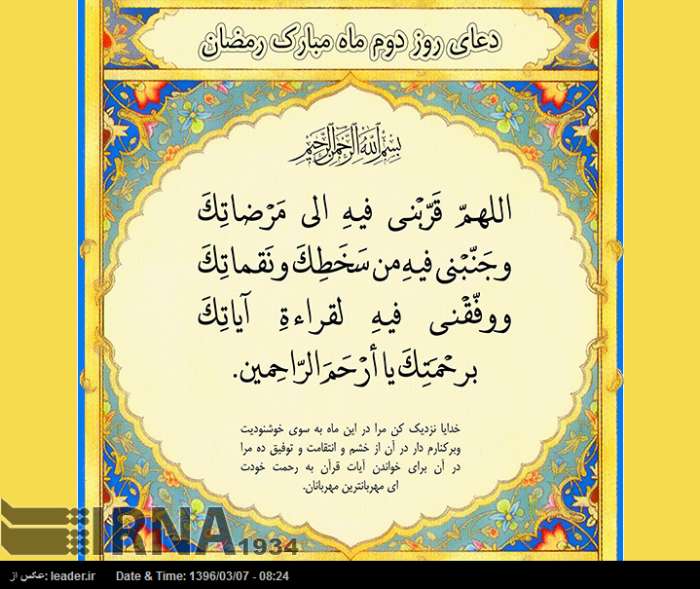 دعای روز دوم ماه مبارک رمضان
بِسْمِ اللهِ الرَّحْمنِ الرَّحيمِ
اللهمّ قَرّبْنی فیهِ الی مَرْضاتِكَ
وجَنّبْنی فیهِ من سَخَطِكَ ونَقماتِكَ
ووفّقْنی فیهِ لقراءةِ آیاتِكَ
برحْمَتِكَ یا أرْحَمَ الرّاحِمین.
خدایا نزدیک کن مرا در این ماه به سوی خوشنودیت
وبرکنارم دار در آن از خشم و انتقامت و توفیق ده مرا
در آن برای خواندن آیات قرآن به رحمت خودت
ای مهربانترین مهربانان.
IRNA 1934
عکس از: leader.ir Date & Time: 1396/03/07 - 08:24